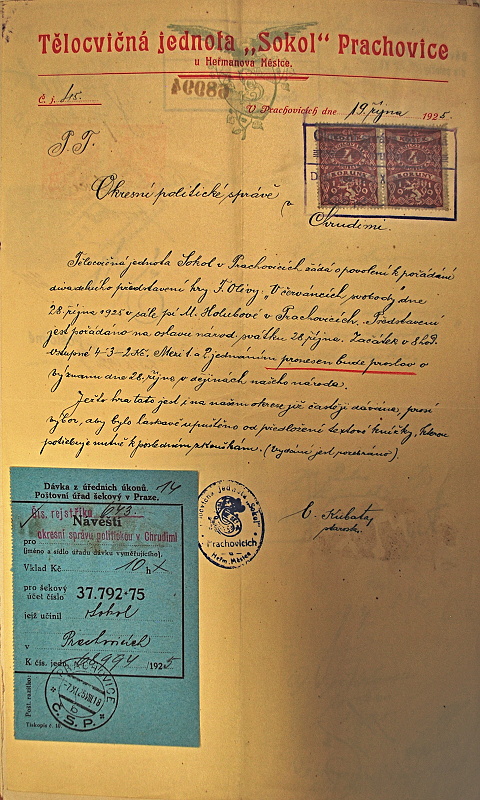 Tělocvičná jednota „Sokol" Prachovice
u Heřmanova Městce.
68994
Č. j.
V Prachovicích dne 19. října 1925.
P. T.
Okresní politické správě
v
Chrudimi.
Tělocvičná jednota Sokol v Prachovicích žádá o povolení k pořádání
divadelního představení hry F. Olivy: „V červáncích svobody" dne
28. října 1925 v sále pí M. Holubové v Prachovicích. Představení
jest pořádáno na oslavu národ. svátku 28. října. Začátek v 8 hod.
Vstupné 4-3-2 Kč. Mezi 1 a 2 jednáním pronesen bude proslov o
významu dne 28. října v dějinách našeho národa.
Ježto hra tato jest i na našem okrese již častěji dávána, prosí
výbor, aby bylo laskavě upuštěno od předložení textové knížky, kterou
potřebuje nutně k posledním zkouškám. (Vydání jest rozebráno).
Dávka z úředních úkonů. 14
Poštovní úřad šekový v Praze.
Čís. rejstříku 643.
Návěstí
pro okresní správu politickou v Chrudimi
(jméno a sídlo úřadu dávku vyměřujícího).
Vklad Kč 10 h x
pro šekový
účet číslo 37.792·75
jejž učinil Sokol
v Prachovicích
K čís. jedn. 68994/1925
PRACHOVICE
Č.S.P.
Post. razítko:
Tělocvičná jednota „Sokol"
v Prachovicích
u
Heřm. Městce
C. Kubata
starosta